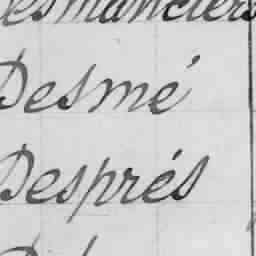 Desmanciers
Desmé
Després